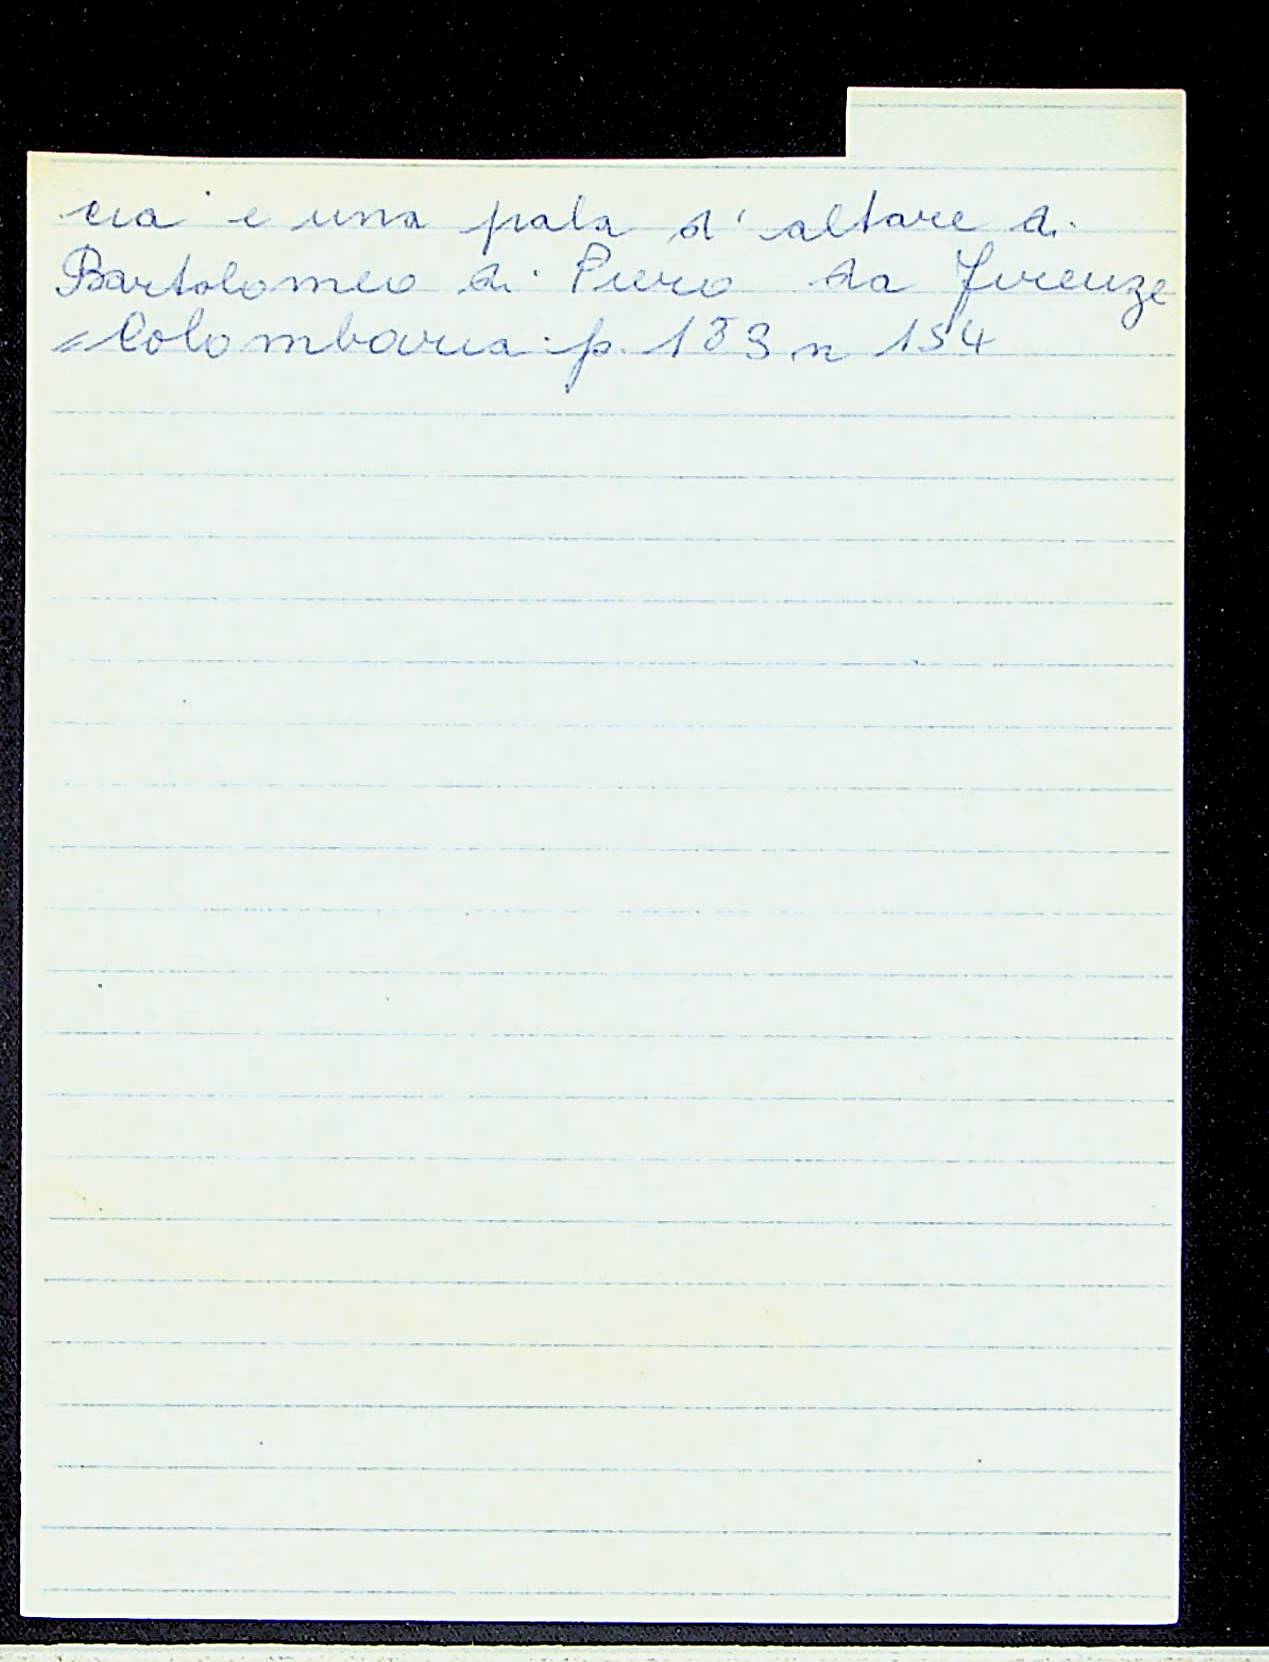 cia e una pala d'altare di
Bartolomeo di Piero da Firenze
= Colombaria p. 153 n 154